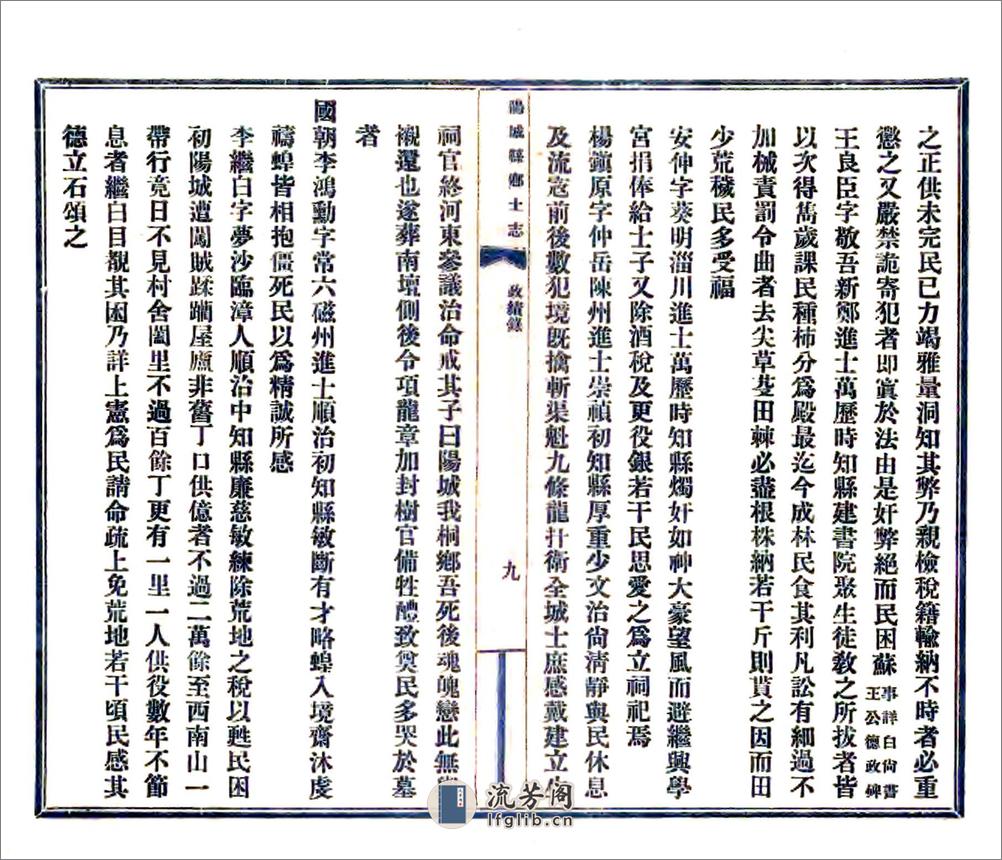 之正供未完民已力竭雅量洞知其弊乃親檢稅籍輸納不時者必重
懲之又嚴禁詭寄犯者即寘於法由是奸弊絕而民困蘇事詳白尙書王公德政碑
王良臣字敬吾新鄭進士萬歷時知縣建書院聚生徒教之所拔者皆
以次得雋歲課民種柿分爲殿最迄今成林民食其利凡訟有細過不
加械責罰令曲者去尖草芟田棘必盡根株納若干斤則貰之因而田
少荒穢民多受福
安伸字葵明淄川進士萬歷時知縣燭奸如神大豪望風而避繼興學
宮捐俸給士子又除酒稅及更役銀若干民思愛之爲立祠祀焉
楊鎮原字仲岳陳州進士崇禎初知縣厚重少文治尙清靜與民休息
及流寇前後數犯境既擒斬渠魁九條龍扞衛全城士庶感戴建立生
陽城縣鄉土志
政績錄
九
祠官終河東參議治命戒其子曰陽城我桐鄉吾死後魂魄戀此無
櫬還也遂葬南壇側後令項龍章加封樹官備牲醴致奠民多哭於墓
者
國朝李鴻勳字常六磁州進士順治初知縣敏斷有才略蝗入境齋沐虔
禱蝗皆相抱僵死民以爲精誠所感
李繼白字夢沙臨漳人順治中知縣廉慈敏練除荒地之稅以甦民困
初陽城遭闖賊蹂躪屋廬非舊丁口供億者不過二萬餘至西南山一
帶行竟日不見村舍闔里不過百餘丁更有一里一人供役數年不節
息者繼白目覩其困乃詳上憲爲民請命疏上免荒地若干頃民感其
德立石頌之
流芳阁
lfglib.cn